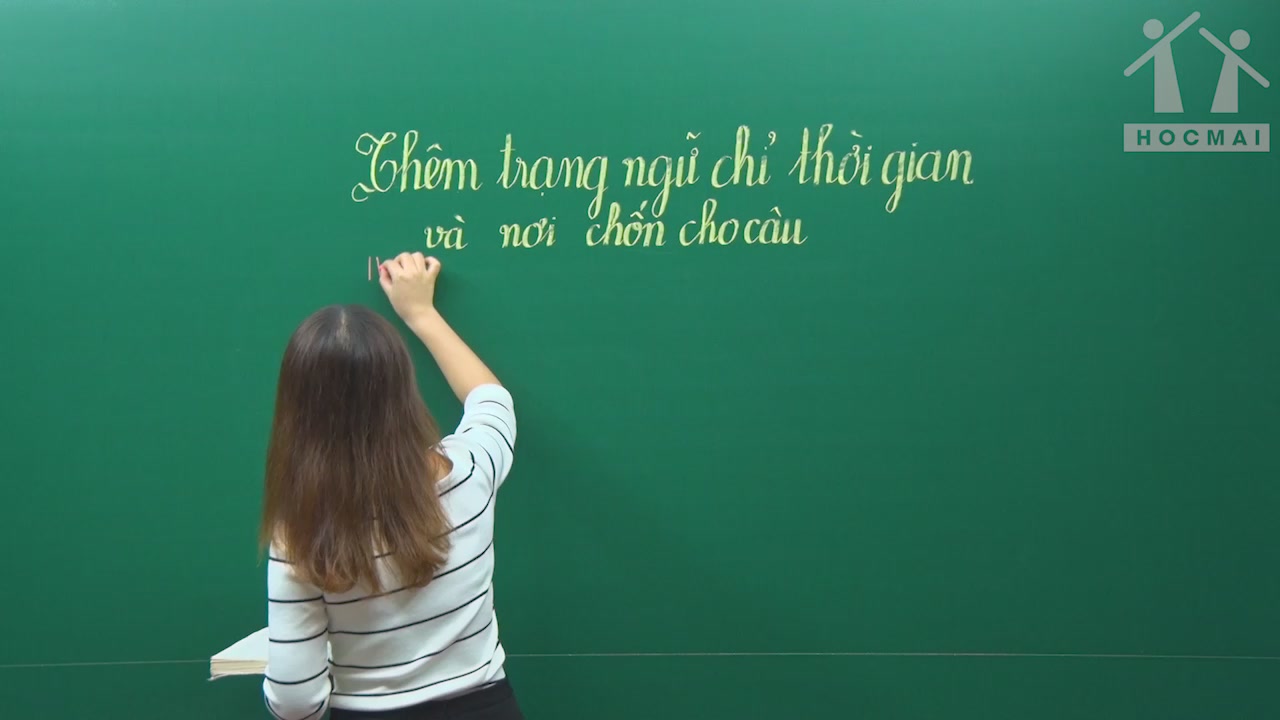 HOCMAI
Thêm trạng ngữ chỉ thời gian
và nơi chốn cho câu